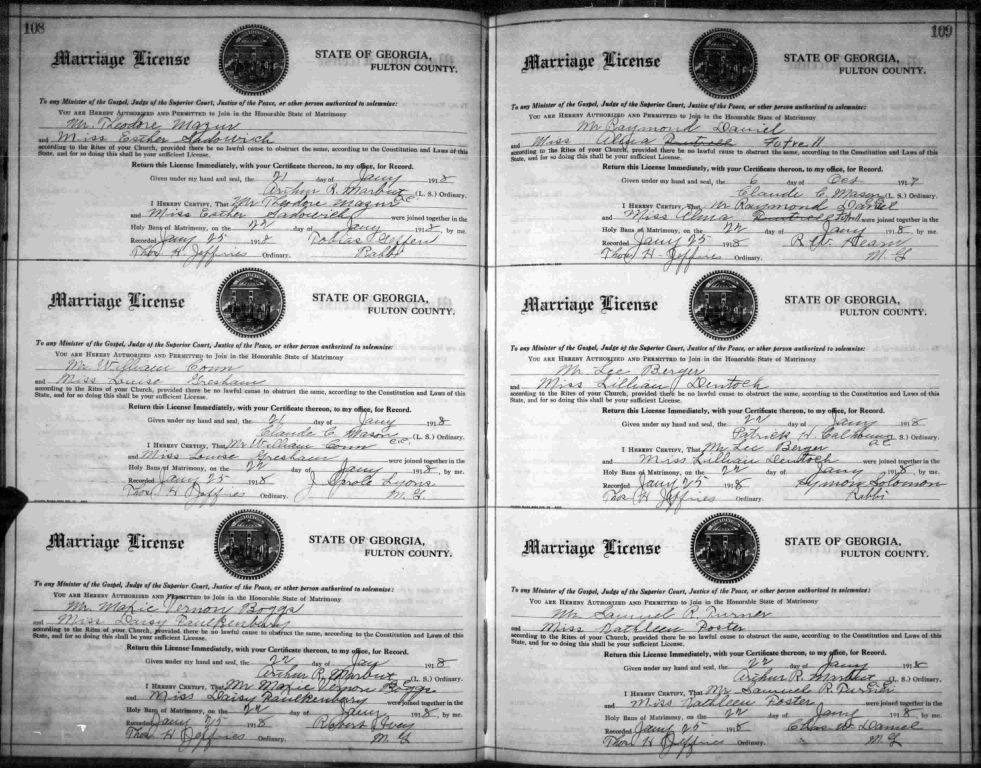 108
Marriage License
STATE OF GEORGIA,
FULTON COUNTY.
To any Minister of the Gospel, Judge of the Superior Court, Justice of the Peace, or other person authorized to solemnize:
YOU ARE HEREBY AUTHORIZED AND PERMITTED to Join in the Honorable State of Matrimony
Mr. Theodore Mazur
and Miss Esther Sadowich
according to the Rites of your Church, provided there be no lawful cause to obstruct the same, according to the Constitution and Laws of this
State, and for so doing this shall be your sufficient License.
Return this License Immediately, with your Certificate thereon, to my office, for Record.
Given under my hand and seal, the 21 day of Jany 1918
Arthur R. Marbut (L. S.) Ordinary.
I HEREBY CERTIFY, That Mr Theodore Mazur
and Miss Esther Sadowich were joined together in the
Holy Bans of Matrimony, on the 22 day of Jany 1918, by me.
Recorded Jany 25 1918 Tobias
Thos. H. Jeffries Ordinary. Rabbi
Marriage License
STATE OF GEORGIA,
FULTON COUNTY.
To any Minister of the Gospel, Judge of the Superior Court, Justice of the Peace, or other person authorized to solemnize:
YOU ARE HEREBY AUTHORIZED AND PERMITTED to Join in the Honorable State of Matrimony
Mr. William Conn
and Miss Louise Gresham
according to the Rites of your Church, provided there be no lawful cause to obstruct the same, according to the Constitution and Laws of this
State, and for so doing this shall be your sufficient License.
Return this License Immediately, with your Certificate thereon, to my office, for Record.
Given under my hand and seal, the 21 day of Jany 1918
Claude C. Mason C.C. (L. S.) Ordinary.
I HEREBY CERTIFY, That Mr William Conn
and Miss Louise Gresham were joined together in the
Holy Bans of Matrimony, on the 22 day of Jany 1918, by me.
Recorded Jany 25 1918 J Sprole Lyons
Thos H Jeffries Ordinary. M. G.
Marriage License
STATE OF GEORGIA,
FULTON COUNTY.
To any Minister of the Gospel, Judge of the Superior Court, Justice of the Peace, or other person authorized to solemnize:
YOU ARE HEREBY AUTHORIZED AND PERMITTED to Join in the Honorable State of Matrimony
Mr. Maxie Vernon Boggs
and Miss Daisy Faulkenbury
according to the Rites of your Church, provided there be no lawful cause to obstruct the same, according to the Constitution and Laws of this
State, and for so doing this shall be your sufficient License.
Return this License Immediately, with your Certificate thereon, to my office, for Record.
Given under my hand and seal, the 22 day of Jany 1918
Arthur R. Marbut (L. S.) Ordinary.
I HEREBY CERTIFY, That Mr Maxie Vernon Boggs
and Miss Daisy Faulkenbury were joined together in the
Holy Bans of Matrimony, on the 22 day of Jany 1918, by me.
Recorded Jany 25 1918 Robert Ivey
Thos H Jeffries Ordinary. M G
109
Marriage License
STATE OF GEORGIA,
FULTON COUNTY.
To any Minister of the Gospel, Judge of the Superior Court, Justice of the Peace, or other person authorized to solemnize:
YOU ARE HEREBY AUTHORIZED AND PERMITTED to Join in the Honorable State of Matrimony
Mr Raymond Daniel
and Miss Alma Futrell
according to the Rites of your Church, provided there be no lawful cause to obstruct the same, according to the Constitution and Laws of this
State, and for so doing this shall be your sufficient License.
Return this License Immediately, with your Certificate thereon, to my office, for Record.
Given under my hand and seal, the 6 day of Oct 1917
Claude C. Mason (L. S.) Ordinary.
I HEREBY CERTIFY, That Mr Raymond Daniel
and Miss Alma Futrell were joined together in the
Holy Bans of Matrimony, on the 22 day of Jany 1918, by me.
Recorded Jany 25 1918 R. W. Hearn
Thos H. Jeffries Ordinary. M. G
Marriage License
STATE OF GEORGIA,
FULTON COUNTY.
To any Minister of the Gospel, Judge of the Superior Court, Justice of the Peace, or other person authorized to solemnize:
YOU ARE HEREBY AUTHORIZED AND PERMITTED to Join in the Honorable State of Matrimony
Mr. Lee Berger
and Miss Lillian Dentoch
according to the Rites of your Church, provided there be no lawful cause to obstruct the same, according to the Constitution and Laws of this
State, and for so doing this shall be your sufficient License.
Return this License Immediately, with your Certificate thereon, to my office, for Record.
Given under my hand and seal, the 22 day of Jany 1918
Patrick H. Calhoun (L. S.) Ordinary.
I HEREBY CERTIFY, That Mr Lee Berger
and Miss Lillian Dentoch were joined together in the
Holy Bans of Matrimony, on the 22 day of Jany 1918, by me.
Recorded Jany 25 1918 Hymon Solomon
Thos H Jeffries Ordinary. Rabbi
Marriage License
STATE OF GEORGIA,
FULTON COUNTY.
To any Minister of the Gospel, Judge of the Superior Court, Justice of the Peace, or other person authorized to solemnize:
YOU ARE HEREBY AUTHORIZED AND PERMITTED to Join in the Honorable State of Matrimony
Mr. Samuel R. Turner
and Miss Kathleen Foster
according to the Rites of your Church, provided there be no lawful cause to obstruct the same, according to the Constitution and Laws of this
State, and for so doing this shall be your sufficient License.
Return this License Immediately, with your Certificate thereon, to my office, for Record.
Given under my hand and seal, the 22 day of Jany 1918
Arthur R. Marbut (L. S.) Ordinary.
I HEREBY CERTIFY, That Mr Samuel R Turner
and Miss Kathleen Foster were joined together in the
Holy Bans of Matrimony, on the 22 day of Jany 1918, by me.
Recorded Jany 25 1918 Chas. W. Daniel
Thos H Jeffries Ordinary. M G